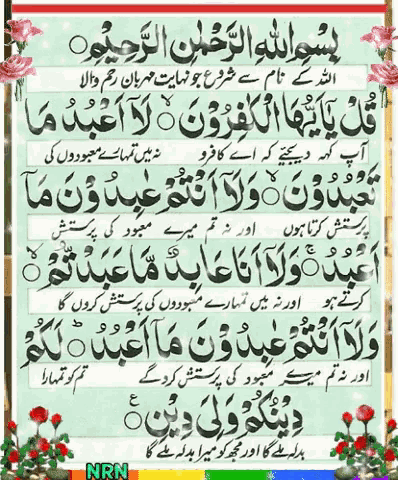 بِسْمِ اللهِ الرَّحْمٰنِ الرَّحِيْمِ○
اللہ کے نام سے شروع جو نہایت مہربان رحم والا
قُلْ يٰۤاَيُّهَا الْكٰفِرُوْنَ○ۙ لَاۤ اَعْبُدُ مَا
آپ کہہ دیجئے کہ اے کافرو نہ میں تمہارے معبودوں کی
تَعْبُدُوْنَ○ۙ وَلَاۤ اَنْتُمْ عٰبِدُوْنَ مَاۤ
پرستش کرتا ہوں اور نہ تم میرے معبود کی پرستش
اَعْبُدُ○ۚ وَلَاۤ اَنَا عَابِدٌ مَّا عَبَدْتُّمْ○ۙ
کرتے ہو اور نہ میں تمہارے معبودوں کی پرستش کروں گا
وَلَاۤ اَنْتُمْ عٰبِدُوْنَ مَاۤ اَعْبُدُ○ؕ لَكُمْ
اور نہ تم میرے معبود کی پرستش کرو گے تم کو تمہارا
دِيْنُكُمْ وَلِيَ دِيْنِ○ع
بدلہ ملے گا اور مجھ کو میرا بدلہ ملے گا
NRN